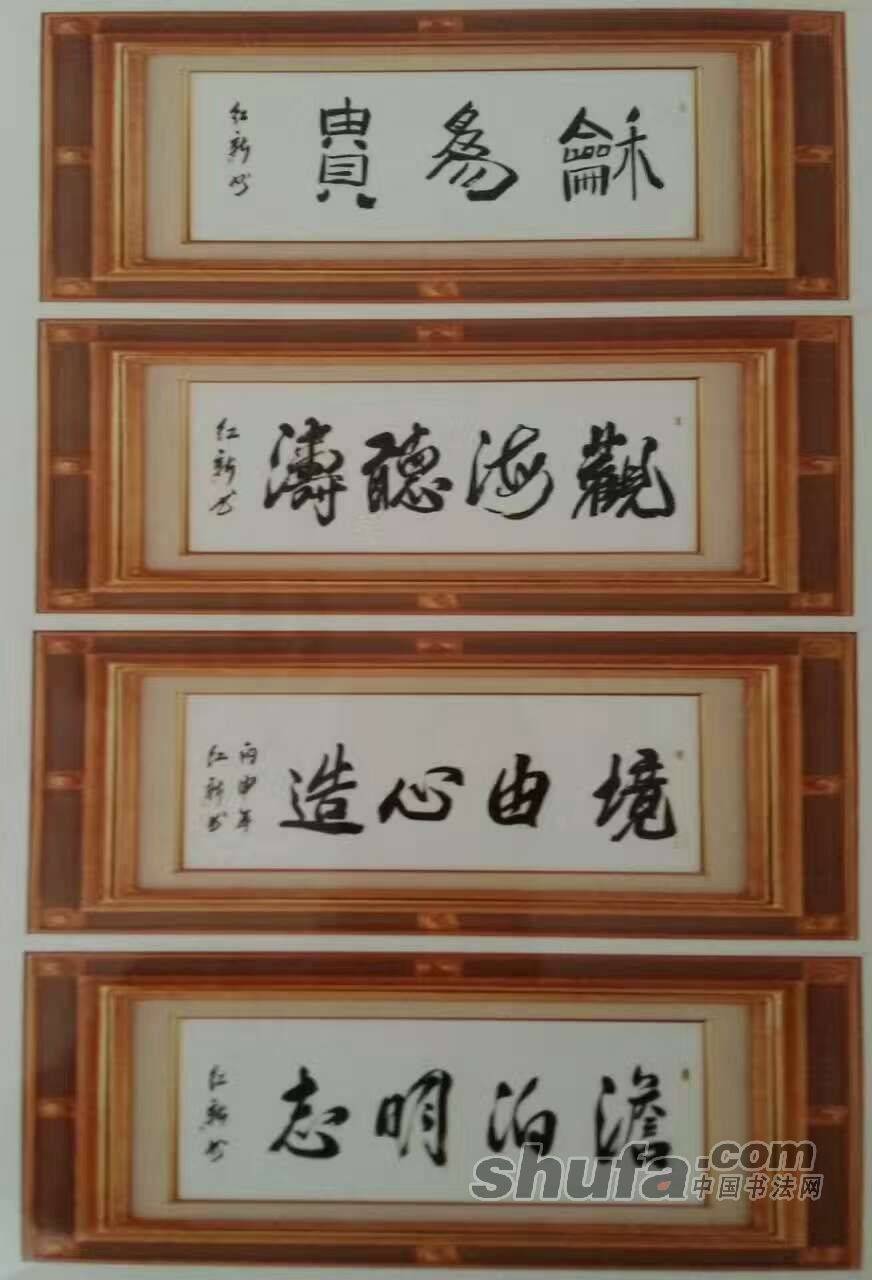 龢為貴
红新书
觀海聽濤
红新书
境由心造
丙申年
红新书
澹泊明志
红新书
shufa.com
中国书法网